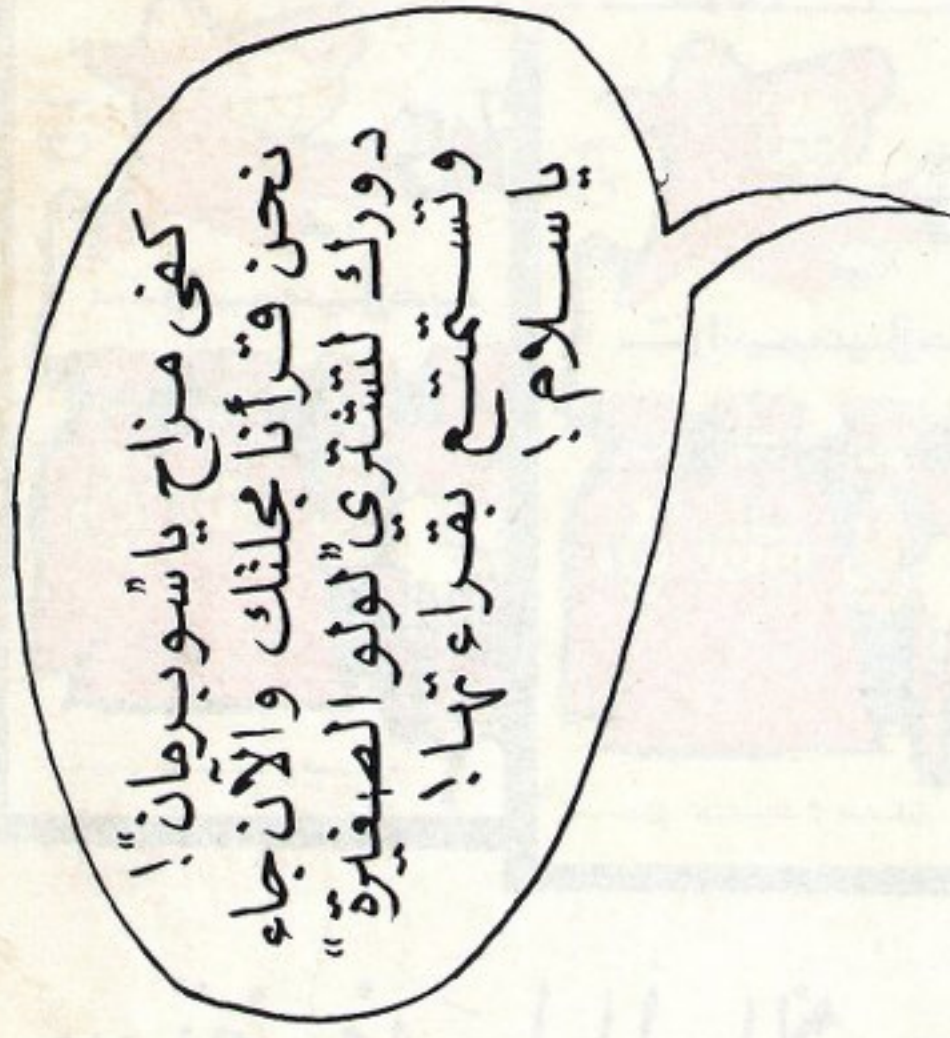 كفى مزاح يا "سوبرمان"!
نحن قرأنا مجلتك والآن جاء
دورك لتشتري "لولو الصغيرة"
وتستمتع بقراءتها!
يا سلام!